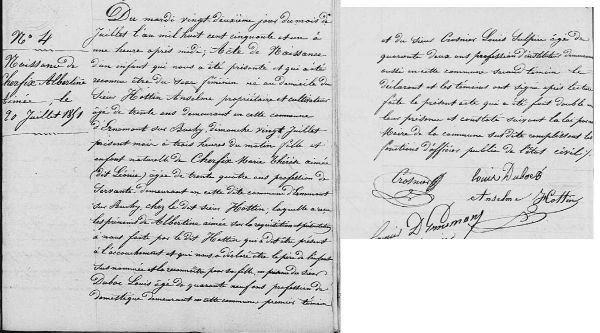 N° 4
Naissance de
Cherfix Albertine
Aimée, le
20 Juillet 1851
Du mardi vingt deuxième jour du mois de
Juillet l'an mil huit cent cinquante et un à
une heure après midi; Acte de Naissance
d'un enfant qui nous a été présenté et qui a été
reconnu être du sexe féminin né au domicile du
Sieur Hottin Anselme propriétaire et cultivateur
âgé de trente ans demeurant en cette commune
d'Ernemont sur Buchy, dimanche vingt Juillet
présent mois à trois heures du matin fille et
enfant naturelle de Cherfix Marie Thérèse aimée
dit Léonie, âgée de trente quatre ans profession de
servante demeurant en cette dite commune d'Ernemont
sur Buchy, chez le dit sieur Hottin, laquelle a reçu
les prénoms de Albertine aimée sur la réquisition et présentation
à nous faite par le dit Hottin qui a dit être présent
à l'accouchement et qui nous a déclaré être le père de l'enfant
sus nommée et la reconnaître pour sa fille, en présence du sieur
Duboc Louis âgé de quarante neuf ans profession de
domestique demeurant en cette commune premier témoin
et du sieur Crosnier Louis âgé de
quarante deux ans profession d'instituteur demeurant
aussi en cette commune second témoin. Le
déclarant et les témoins ont signé après lecture
faite le présent acte qui a été fait double en
leur présence et constaté suivant la loi par nous
Maire de la commune sus dite remplissant les
fonctions d'officier public de l'état civil.
Crosnier
Louis Duboc
Anselme Hottin
Louis D